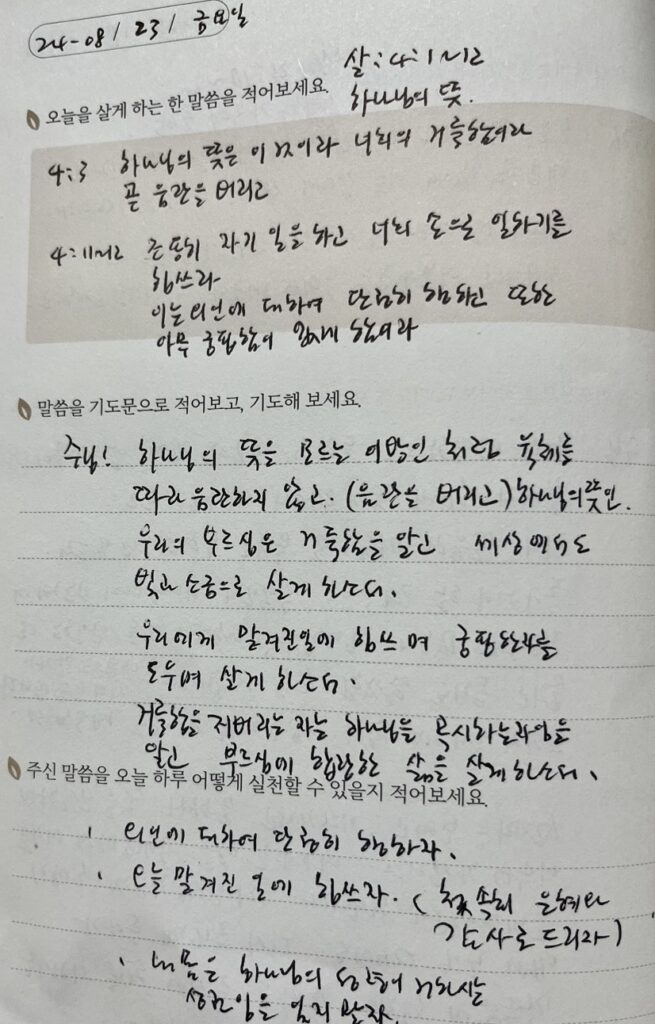 24-08/23/ 금요일
살:4:1~12
오늘을 살게 하는 한 말씀을 적어보세요.
하나님의 뜻.
4:3 하나님의 뜻은 이것이라 너희의 거룩함이라
곧 음란을 버리고
4:11~12 조용히 자기 일을 하고 너희 손으로 일하기를
힘쓰라
이는 외인에 대하여 단정히 행하고 또한
아무 궁핍함이 없게 하려함이라
말씀을 기도문으로 적어보고, 기도해 보세요.
주님! 하나님의 뜻을 모르는 이방인처럼 육체를
따라 음란하지 않고. (음란을 버리고) 하나님의 뜻인.
우리의 부르심은 거룩함을 알고 세상에서도
빛과 소금으로 살게 하소서.
우리에게 맡겨진 일에 힘쓰며 궁핍한 자를
도우며 살게 하소서.
거룩함을 저버리는 자는 하나님을 멸시하는 것임을
알고 부르심에 합당한 삶을 살게 하소서.
주신 말씀을 오늘 하루 어떻게 실천할 수 있을지 적어보세요.
· 외인에 대하여 단정히 행하자.
· 오늘 맡겨진 일에 힘쓰자. ( 속회 은혜와
감사로 드리자)
· 내 몸은 하나님의 성령이 거하시는
성전임을 잊지 말자.